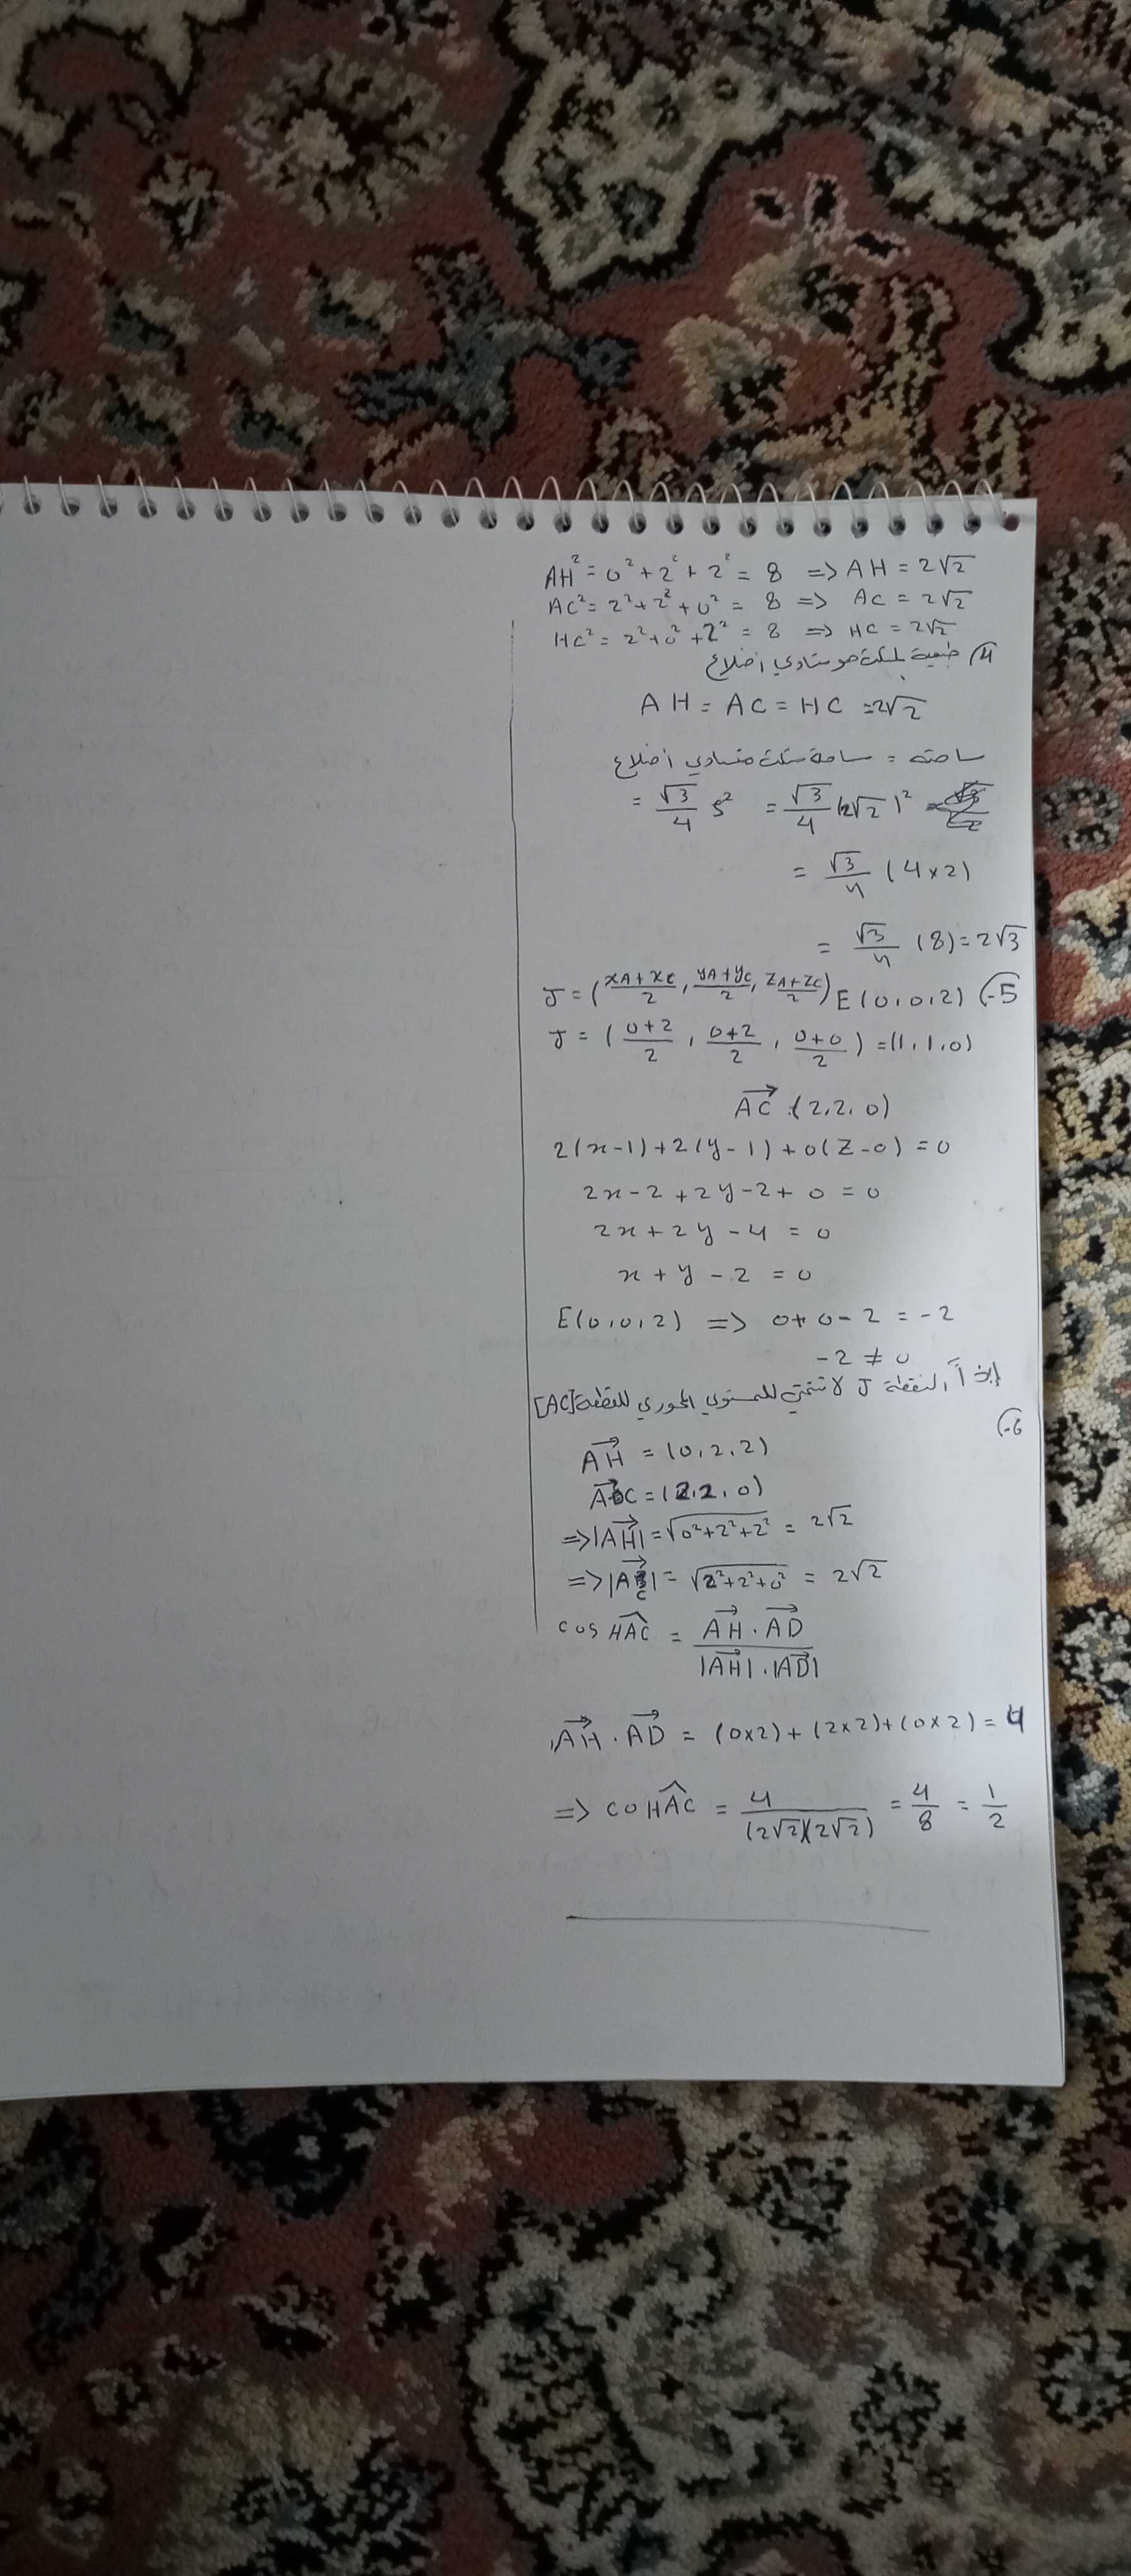 AH² = 0² + 2² + 2² = 8 => AH = 2√2
AC² = 2² + 2² + 0² = 8 => AC = 2√2
HC² = 2² + 0² + 2² = 8 => HC = 2√2
4) طبيعة المثلث هو متساوي اضلاع
AH = AC = HC = 2√2
ساحته = ساحة مثلث متساوي اضلاع
= √3/4 S² = √3/4 (2√2)²
= √3/4 (4×2)
= √3/4 (8) = 2√3
5-) E(0,0,2) J = (xA+xC/2, yA+yC/2, zA+zC/2)
J = (0+2/2, 0+2/2, 0+0/2) = (1,1,0)
AC⃗ (2,2,0)
2(x-1)+2(y-1)+0(z-0) = 0
2x-2+2y-2+0 = 0
2x+2y-4 = 0
x+y-2 = 0
E(0,0,2) => 0+0-2 = -2
-2 ≠ 0
إذاً النقطة J لا تنتمي للمستوي المحوري للقطعة [AC]
6-)
AH⃗ = (0,2,2)
AC⃗ = (2,2,0)
=> |AH⃗| = √0²+2²+2² = 2√2
=> |AC⃗| = √2²+2²+0² = 2√2
cos HAC = AH⃗ . AD⃗ / |AH⃗| . |AD⃗|
AH⃗ . AD⃗ = (0×2)+(2×2)+(0×2) = 4
=> co HAC = 4/(2√2)(2√2) = 4/8 = 1/2